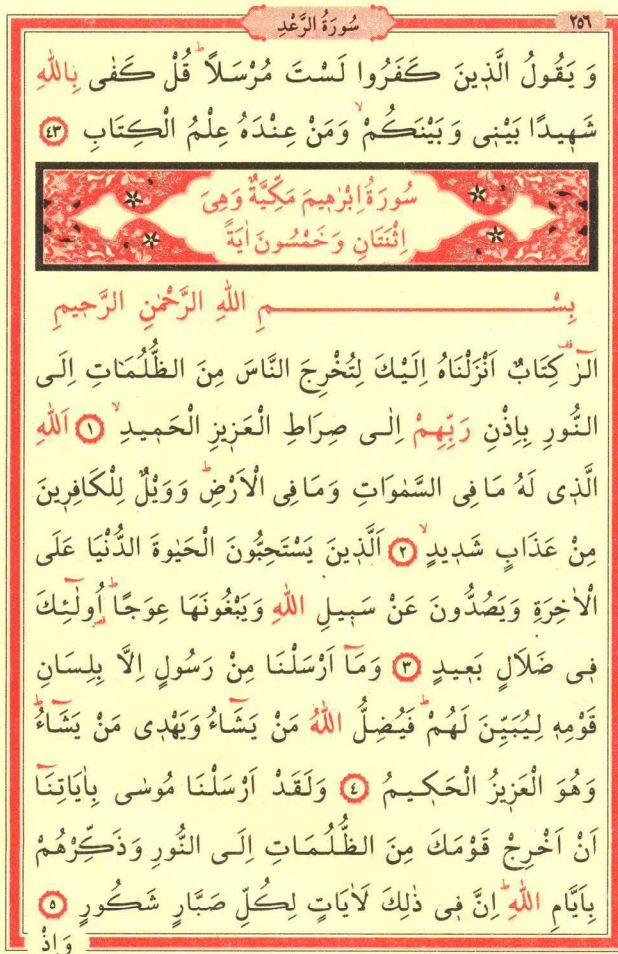 سُورَةُ الرَّعْدِ ٢٥٦
وَ يَقُولُ الَّذ۪ينَ كَفَرُوا لَسْتَ مُرْسَلاًۜ قُلْ كَفٰى بِاللّٰهِ
شَه۪يدًا بَيْن۪ى وَ بَيْنَكُمْۙ وَمَنْ عِنْدَهُ عِلْمُ الْكِتَابِ ﴿٤٣﴾
سُورَةُ اِبْرٰه۪يمَ مَكِّيَّةٌ وَهِىَ
اِثْنَتَانِ وَخَمْسُونَ اٰيَةً
بِسْمِ اللّٰهِ الرَّحْمٰنِ الرَّح۪يمِ
الٓرٰ۠ كِتَابٌ اَنْزَلْنَاهُ اِلَيْكَ لِتُخْرِجَ النَّاسَ مِنَ الظُّلُمَاتِ اِلَى
النُّورِ بِاِذْنِ رَبِّهِمْ اِلٰى صِرَاطِ الْعَز۪يزِ الْحَم۪يدِۙ ﴿١﴾ اَللّٰهِ
الَّذ۪ى لَهُ مَا فِى السَّمٰوَاتِ وَمَا فِى الْاَرْضِۜ وَوَيْلٌ لِلْكَافِر۪ينَ
مِنْ عَذَابٍ شَد۪يدٍۙ ﴿٢﴾ اَلَّذ۪ينَ يَسْتَحِبُّونَ الْحَيٰوةَ الدُّنْيَا عَلَى
الْاٰخِرَةِ وَيَصُدُّونَ عَنْ سَب۪يلِ اللّٰهِ وَيَبْغُونَهَا عِوَجًاۜ اُو۬لٰٓئِكَ
ف۪ى ضَلَالٍ بَع۪يدٍ ﴿٣﴾ وَمَٓا اَرْسَلْنَا مِنْ رَسُولٍ اِلَّا بِلِسَانِ
قَوْمِه۪ لِيُبَيِّنَ لَهُمْۜ فَيُضِلُّ اللّٰهُ مَنْ يَشَٓاءُ وَيَهْد۪ى مَنْ يَشَٓاءُۜ
وَهُوَ الْعَز۪يزُ الْحَك۪يمُ ﴿٤﴾ وَلَقَدْ اَرْسَلْنَا مُوسٰى بِاٰيَاتِنَٓا
اَنْ اَخْرِجْ قَوْمَكَ مِنَ الظُّلُمَاتِ اِلَى النُّورِ وَذَكِّرْهُمْ
بِاَيَّامِ اللّٰهِۜ اِنَّ ف۪ى ذٰلِكَ لَاٰيَاتٍ لِكُلِّ صَبَّارٍ شَكُورٍ ﴿٥﴾
وَاِذْ